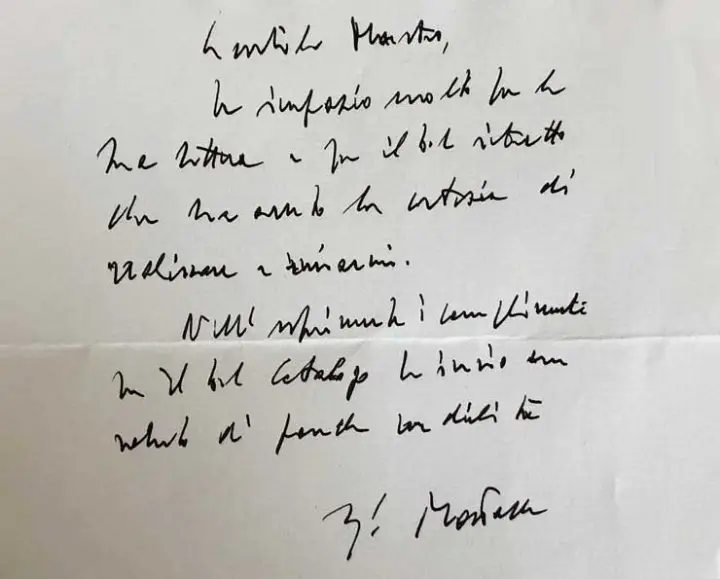 Gentile Maestro,
La ringrazio molto per la
sua lettera e per il bel ritratto
che ha avuto la cortesia di
realizzare e inviarmi.
Nell' esprimerle i complimenti
per il bel catalogo Le invio un
saluto di grande cordialità